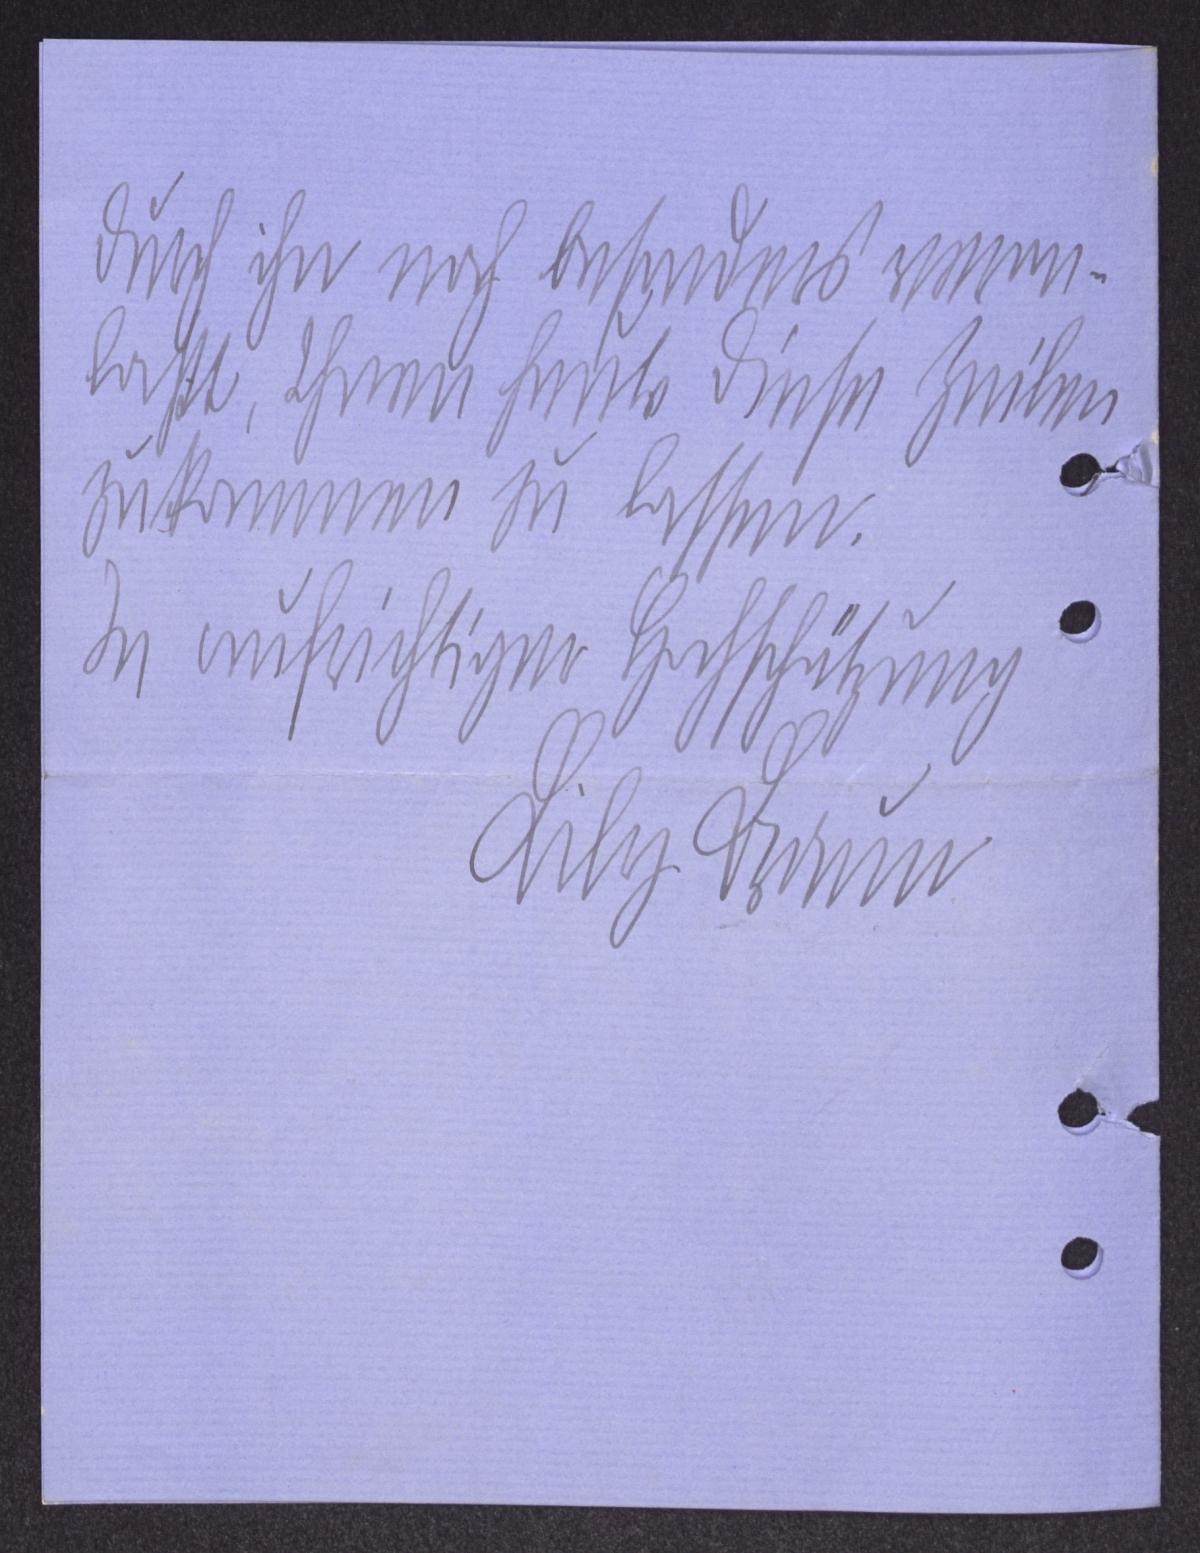 durch ihn noch besonders veran-
laßt, Ihnen heute diese Zeilen
zukommen zu lassen.
In aufrichtiger Hochschätzung
Lily Braun